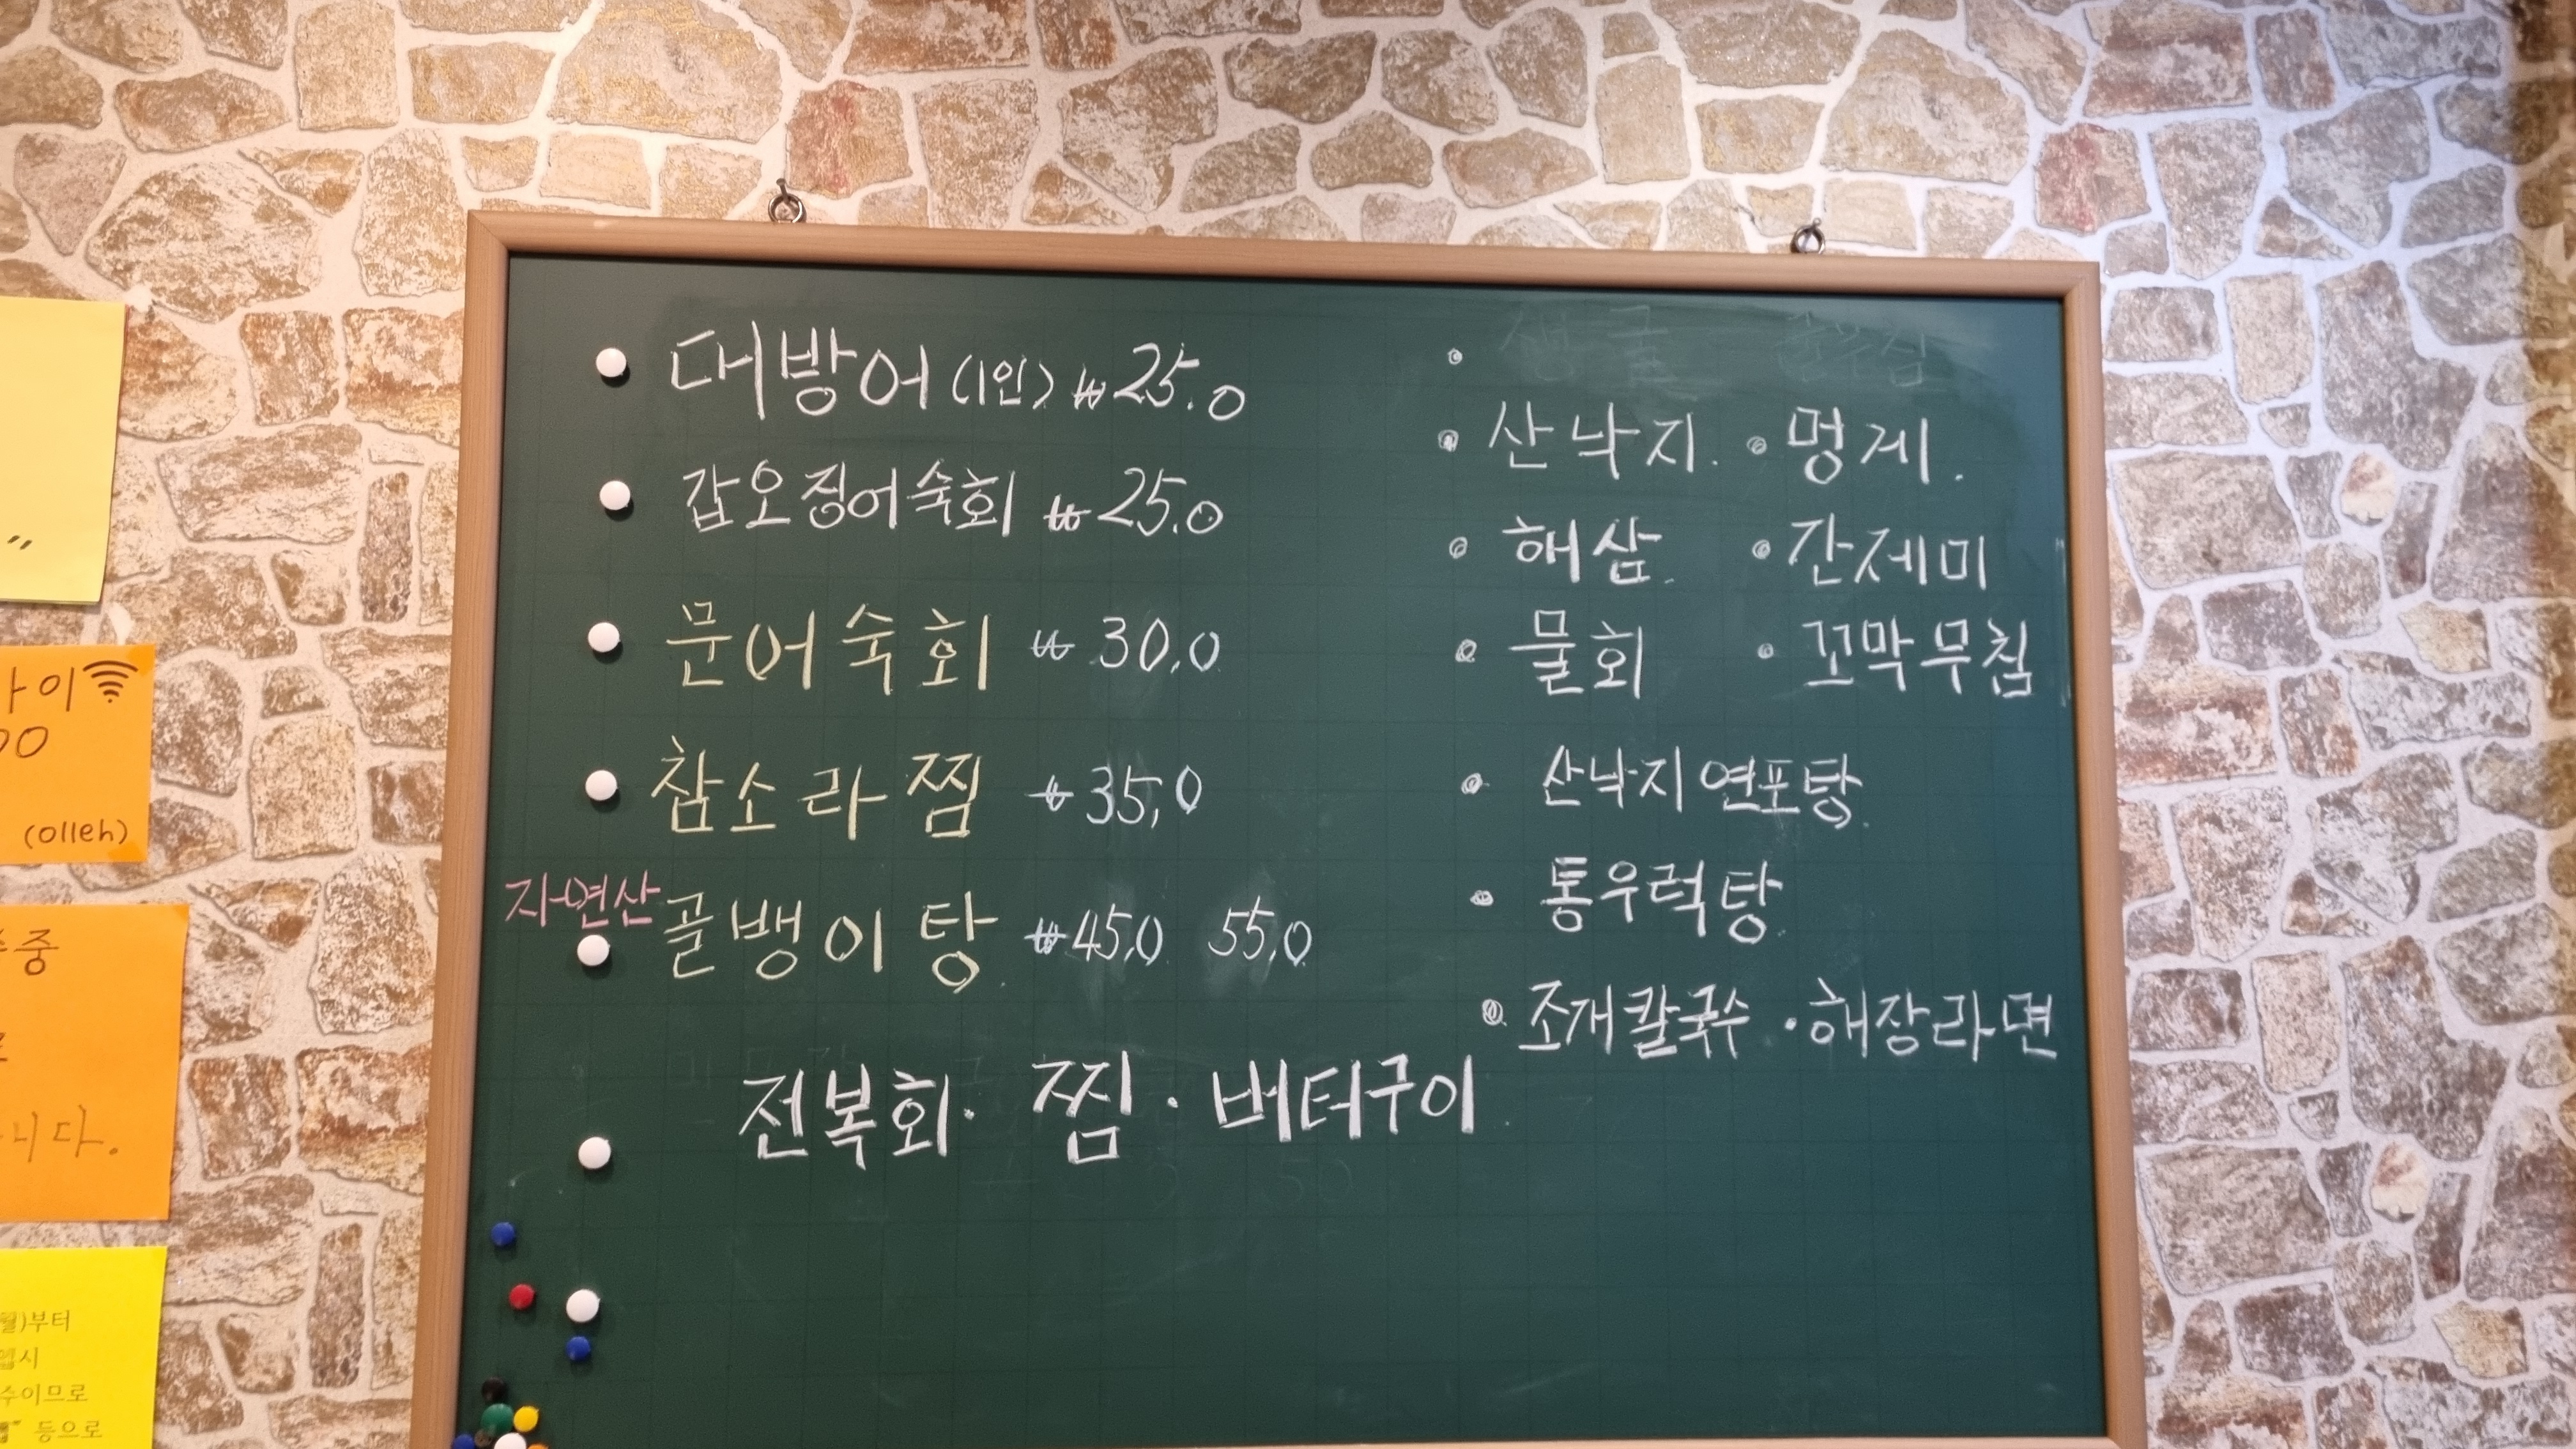 대방어(1인) ₩25.0
갑오징어숙회 ₩25.0
문어숙회 ₩30.0
참소라찜 ₩35,0
자연산
골뱅이탕 ₩45,0 55,0
전복회· 찜· 버터구이
산낙지. 멍게.
해삼 간제미
물회 꼬막무침
산낙지연포탕
통우럭탕
조개칼국수 ·해장라면
”
이
00
(olleh)
중
니다.
부터
시
수이므로
등으로